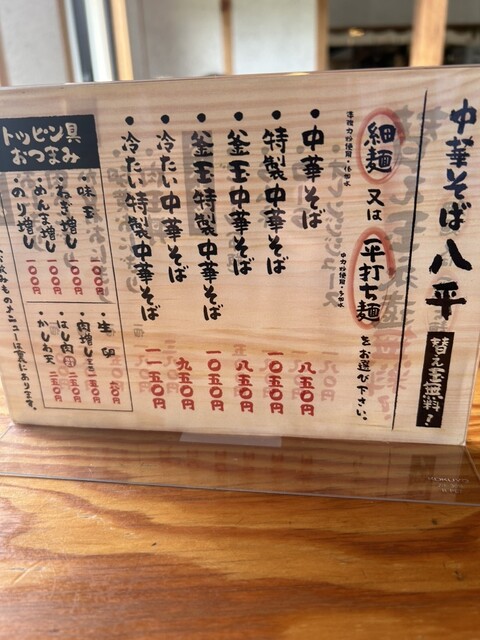 中華そば 八平
替え玉無料！
細麺 又は 平打ち麺 をお選び下さい。
・中華そば 八五〇円
・特製中華そば 一〇五〇円
・釜玉中華そば 八五〇円
・釜玉特製中華そば 一〇五〇円
・冷たい中華そば 九五〇円
・冷たい特製中華そば 一一五〇円
トッピン具
おつまみ
・味玉 一〇〇円
・ねぎ増し 一〇〇円
・めんま増し 一〇〇円
・のり増し 一〇〇円
・生卵 五〇円
・肉増し 二五〇円
・はし肉 二五〇円
・かしわ天 二五〇円
メニューは裏にあります。